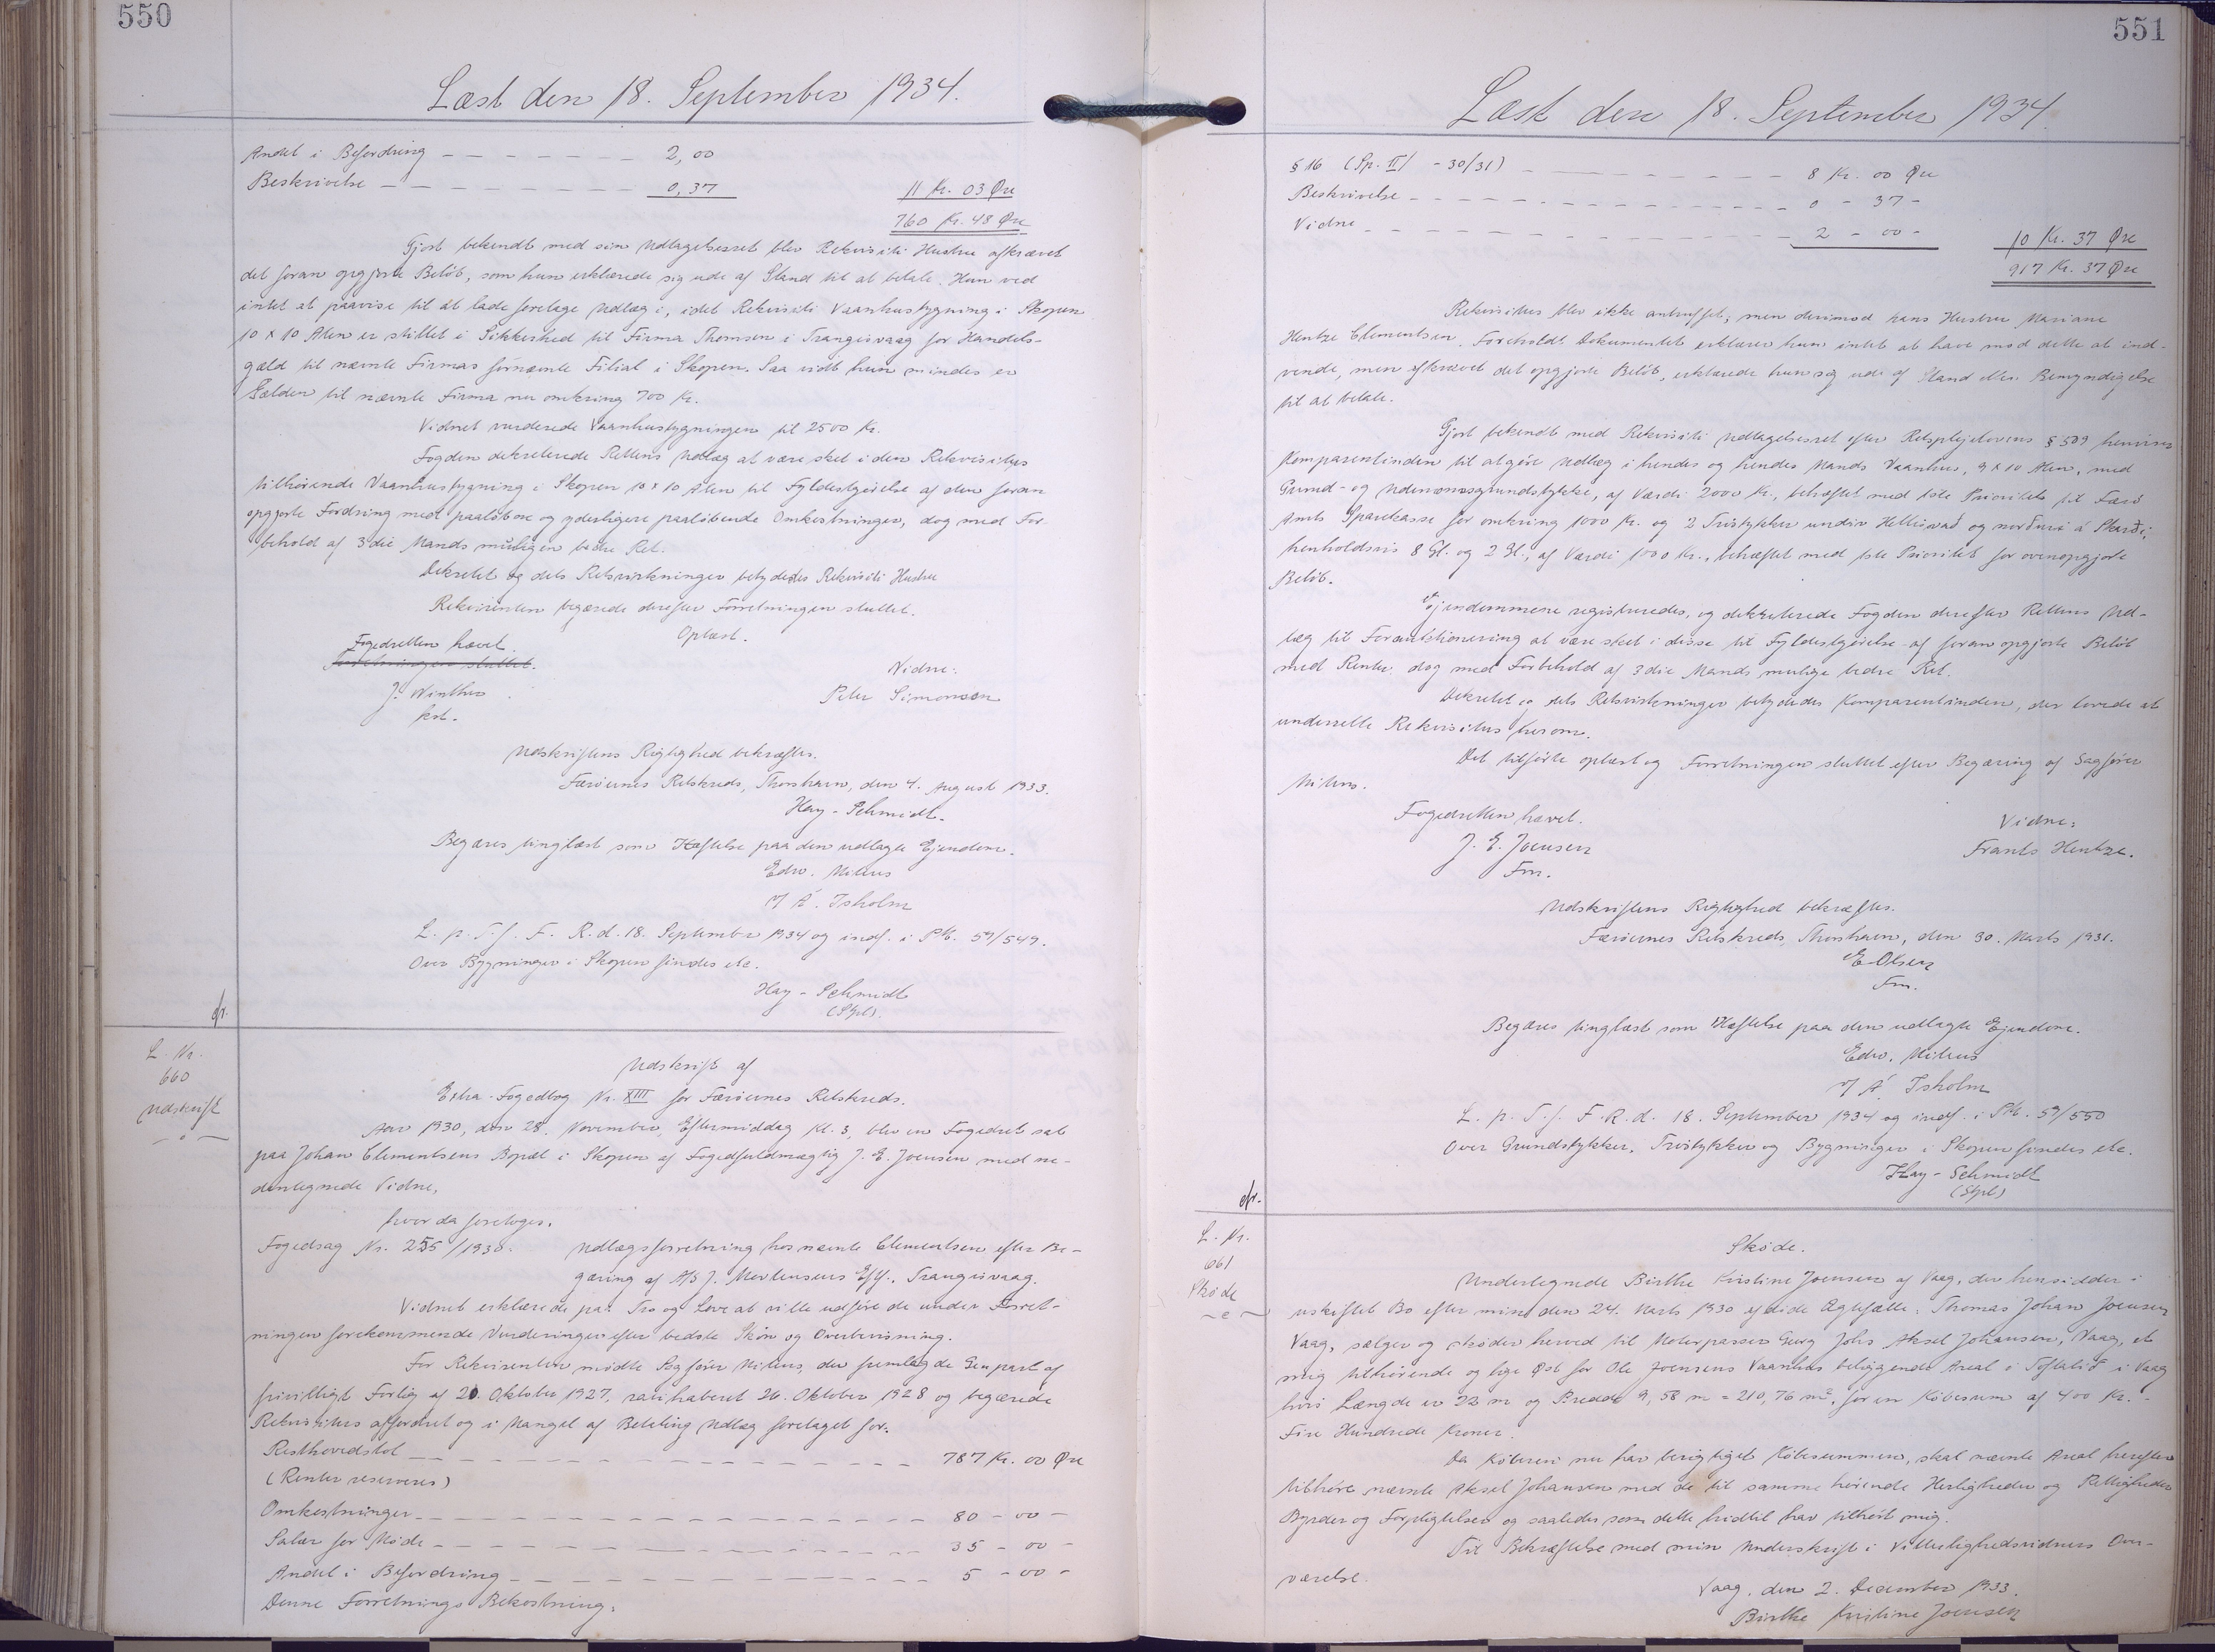 550
Læst den 18. September 1934.
Andel i Befordring — — — — — — — 2,00
Beskrivelse — — — — — — — — 0,37 11 Kr. 03 Øre
760 Kr. 48 Øre
Gjort bekendt med sin Udlagelsesret blev Rekvisiti Hustru afkrævet
det foran opgjorte Beløb, som hun erklærede sig ude af Stand til at betale. Hun ved
intet at paavise til at lade foretage Udlæg i, idet Rekvisiti Vaanhusbygning i Skopun
10 x 10 Alen er stillet i Sikkerhed til Firma Thomsen i Trangisvaag for Handels-
gæld til nævnte Firmas fornævnte Filial i Skopun. Saa vidt hun mindes er
Gælden til nævnte Firma nu omkring 700 Kr.
Vidnet vurderede Vaanhusbygningen til 2500 Kr.
Fogden dekreterede Rettens Udlæg at være sket i den Rekvisitus
tilhørende Vaanhusbygning i Skopun 10 x 10 Alen til Fyldestgørelse af den foran
opgjorte Fordring med paaløbne og yderligere paaløbende Omkostninger, dog med For-
behold af 3die Mands muligen bedre Ret.
Dekretet og dets Retsvirkninger betydedes Rekvisiti Hustru
Rekvirenten begærede derefter Forretningen sluttet.
Oplæst.
Fogedretten hævet.
Forretningen sluttet.
Vidne:
J. Winther
kst.
Peter Simonsen
Udskriftens Rigtighed bekræftes.
Færøernes Retskreds, Thorshavn, den 4. August 1933.
Hay-Schmidt.
Begæres tinglæst som Hæftelse paa den udlagte Ejendom.
Edw. Mitens
/ Á. Isholm
L. p. T. f. F. R. d. 18. September 1934 og indf. i S.P. 59/549.
Over Bygninger i Skopun findes etc.
Hay-Schmidt
(Stpl).
L. Nr.
660
Udskrift
Udskrift af
Extra-Fogedbog Nr. XIII for Færøernes Retskreds.
Aar 1930, den 28. November, Eftermiddag Kl. 3, blev en Fogedret sat
paa Johan Clementsens Bopæl i Skopun af Fogedfuldmægtig J. E. Joensen med ne-
dentegnede Vidne,
hvor da foretoges.
Fogedsag Nr. 255/1930. Udlægsforretning hos nævnte Clementsen efter Be-
gæring af A/S J. Mortensens Eftf., Trangisvaag.
Vidnet erklærede paa Tro og Love at ville udføre de under Forret-
ningen forekommende Vurderinger efter bedste Skøn og Overbevisning.
For Rekvirenten mødte Sagfører Mitens, der fremlagde Genpart af
frivilligt Forlig af 20. Oktober 1927, ratihaberet 26. Oktober 1928 og begærede
Rekvisitus affordret og i Mangel af Betaling Udlæg foretaget for.
Resthovedstol — — — — — — — — — — 787 Kr. 00 Øre
(Renter reserveres)
Omkostninger — — — — — — — — — — 80 - 00 -
Salær for Møde — — — — — — — — — — 35 - 00 -
Andel i Befordring — — — — — — — — — 5 - 00 -
Denne Forretnings Bekostning:
551
Læst den 18. September 1934.
§ 16 (Sp. II/ - 30/31) — — — — — — — 8 Kr. 00 Øre
Beskrivelse — — — — — — — — — — 0 - 37 -
Vidne — — — — — — — — — — — 2 - 00 - 10 Kr. 37 Øre
917 Kr. 37 Øre
Rekvisitus blev ikke antruffet; men derimod hans Hustru Mariane
Hentze Clementsen. Foreholdt Dokumentet erklærer hun intet at have mod dette at ind-
vende, men afkrævet det opgjorte Beløb, erklærede hun sig ude af Stand eller Bemyndigelse
til at betale.
Gjort bekendt med Rekvisiti Udtagelsesret efter Retsplejelovens § 509 henviser
Komparentinden til at gøre Udlæg i hendes og hendes Mands Vaanhus, 9 x 10 Alen, med
Grund- og Udenomsgrundstykke, af Værdi 2000 Kr., behæftet med 1ste Prioritet til Færø
Amts Sparekasse for omkring 1000 Kr. og 2 Trøstykker undir Hellisvað og norðuri á Skarði,
henholdsvis 8 Gl. og 2 Gl., af Værdi 1000 Kr., behæftet med 1ste Prioritet for ovenopgjorte
Beløb.
Ejendommene registreredes, og dekreterede Fogden derefter Rettens Ud-
læg til Forauktionering at være sket i disse til Fyldestgørelse af foran opgjorte Beløb
med Renter dog med Forbehold af 3die Mands mulige bedre Ret.
Dekretet og dets Retsvirkninger betydedes Komparentinden, der lovede at
underrette Rekvisitus herom.
Det tilførte oplæst og Forretningen sluttet efter Begæring af Sagfører
Mitens.
Fogedretten hævet.
Vidne:
J. E. Joensen
Fm.
Frants Hentze.
Udskriftens Rigtighed bekræftes.
Færøernes Retskreds, Thorshavn, den 30. Marts 1931.
E Olsen
Fm.
Begæres tinglæst som Hæftelse paa den udlagte Ejendom.
Edw. Mitens
/ Á Isholm
L. p. T. f. F. R. d. 18. September 1934 og indf. i S.P. 59/550
Over Grundstykker, Trøstykker og Bygninger i Skopun findes etc.
Hay-Schmidt
(Stpl)
L. Nr.
661
Skøde
Skøde.
Undertegnede Birthe Kristine Joensen af Vaag, der hensidder i
uskiftet Bo efter min den 24. Marts 1930 afdøde Ægtefælle: Thomas Johan Joensen
Vaag, sælger og skøder herved til Motorpasser Georg Johs Aksel Johansen, Vaag, et
mig tilhørende og lige Øst for Ole Joensens Vaanhus beliggende Areal i Toftatið i Vaag
hvis Længde er 22 m og Bredde 9,58 m = 210,76 m², for en Købesum af 400 Kr. -
Fire Hundrede Kroner.
Da Køberen nu har berigtiget Købesummen, skal nævnte Areal herefter
tilhøre nævnte Aksel Johansen med de til samme hørende Herligheder og Rettigheder
Byrder og Forpligtelser og saaledes som dette hidtil har tilhørt mig.
Til Bekræftelse med min Underskrift i Vitterlighedsvidners Over-
værelse.
Vaag, den 2. December 1933.
Birthe Kristine Joensen